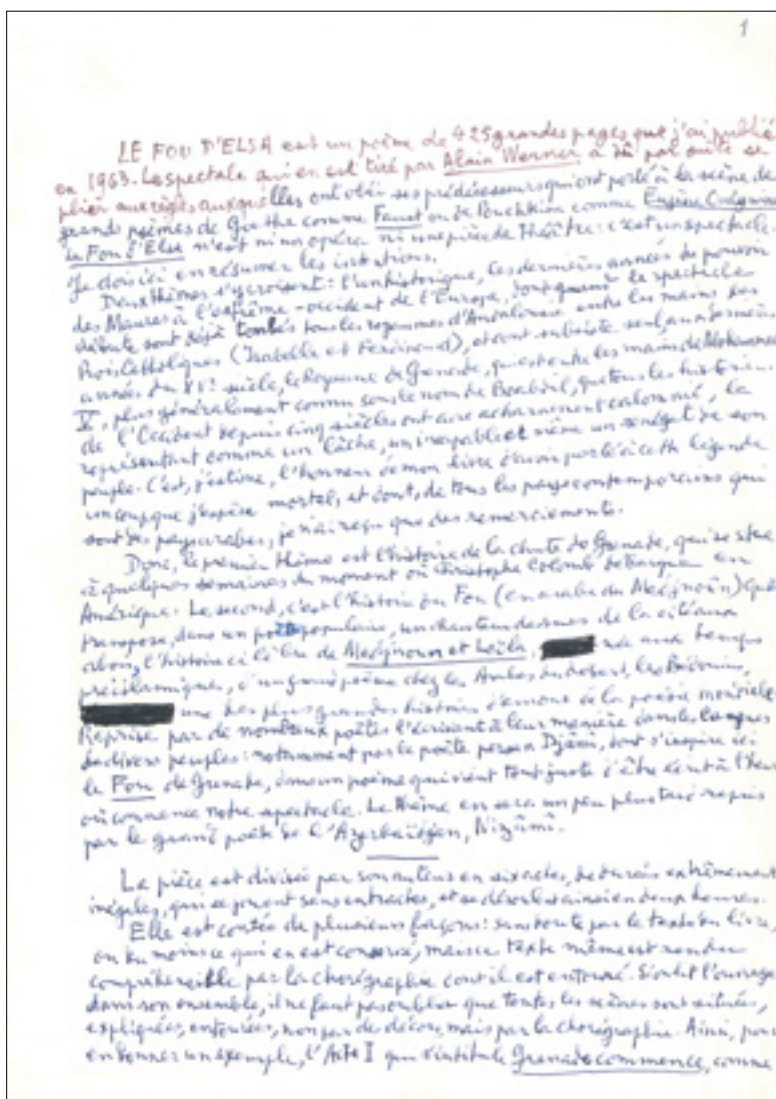 1
LE FOU D'ELSA est un poème de 425 grandes pages que j'ai publié
en 1963. Le spectacle qui en est tiré par Alain Werner a dû par suite se
plier aux règles auxquelles ont obéi ses prédécesseurs qui ont porté à la scène de
grands poèmes de Goethe comme Faust ou de Pouchkine comme Eugène Onéguine
Le Fou d'Elsa n'est ni un opéra ni une pièce de théâtre: c'est un spectacle.
Je dois ici en résumer les intentions.
Deux thèmes s'y croisent: l'un historique, les dernières années du pouvoir
des Maures à l'extrême-occident de l'Europe, quand le spectacle
débute sont déjà tombés tous les royaumes d'Andalousie entre les mains des
Rois Catholiques (Isabelle et Ferdinand), et dont subsiste seul, aux dernières
années du XVe siècle, le Royaume de Grenade, qui est entre les mains de Mohammed
plus généralement connu sous le nom de Boabdil, que tous les historiens
de l'Occident depuis cinq siècles ont avec acharnement calomnié, le
représentant comme un lâche, un incapable et même un renégat de son
peuple. C'est, j'estime, l'honneur de mon livre d'avoir porté à cette légende
un coup que j'espère mortel, et dont, de tous les pays contemporains qui
sont des pays arabes, je n'ai reçu que des remerciements.
Donc, le premier thème est l'histoire de la chute de Grenade, qui se situe
à quelques semaines du moment où Christophe Colomb débarque en
Amérique. Le second, c'est l'histoire du Fou (en arabe du Medjnoûn) qui
transpose, dans un populaire, un chanteur des rues de la cité aux
abois, l'histoire célèbre de Medjnoun et Leïla, née aux temps
préislamiques, d'un grand poème chez les Arabes du désert, les Bédouins,
une des plus grandes histoires d'amour de la poésie mondiale
Reprise par de nombreux poètes l'écrivant à leur manière dans les langues
de divers peuples: notamment par le poète persan Djâmî, dont s'inspire ici
le Fou de Grenade, dans un poème qui vient tout juste d'être écrit à l'heure
où commence notre spectacle. Le thème en sera un peu plus tard repris
par le grand poète de l'Azerbaïdjan, Nizâmî.
La pièce est divisée par son auteur en six actes, de durées extrêmement
inégales, qui se jouent sans entractes, et se déroulent ainsi en deux heures.
Elle est contée de plusieurs façons: sans doute par le texte du livre,
ou du moins ce qui en est conservé, mais ce texte même est rendu
compréhensible par la chorégraphie dont il est entouré. l'ouvrage
dans son ensemble, il ne faut pas oublier que toutes les scènes sont situées,
expliquées, entourées, non par de décors, mais par la chorégraphie. Ainsi, pour
en donner un exemple, l'Acte I qui s'intitule Grenade commence, comme